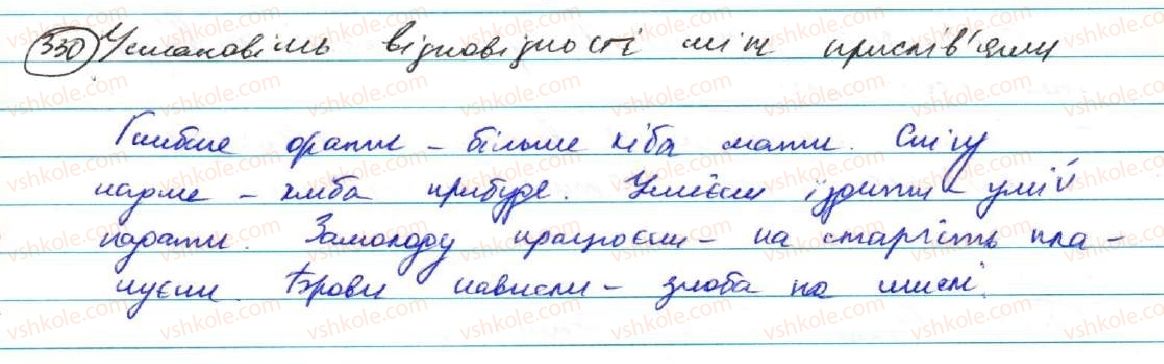 330 Установіть відповідності між прислів'ями
Глибше орати – більше хліба мати. Снігу
надме – хліба прибуде. Умієш їздити – умій
падати. Замолоду працюєш – на старість пла-
нуєш. Брови нависли – злоба на мислі.